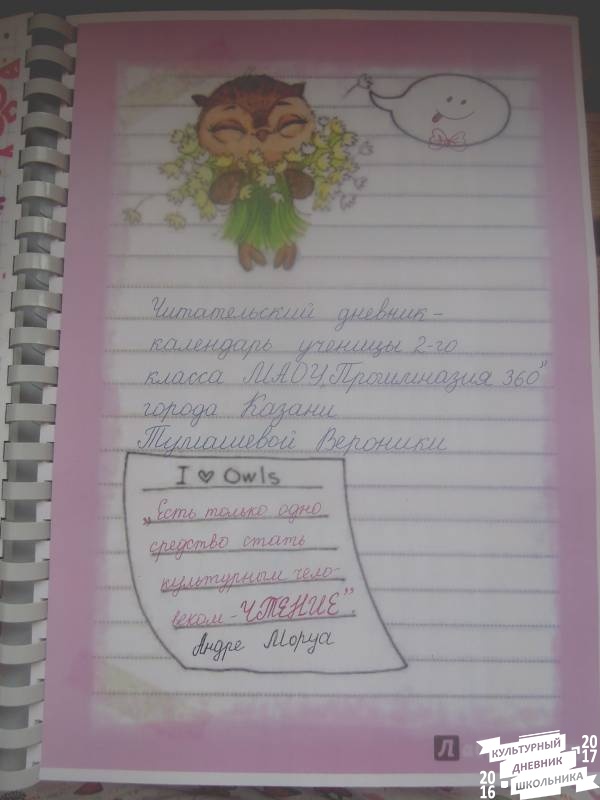 Читательский дневник-
календарь ученицы 2-го
класса МАОУ„Прогимназия 360”
города Казани
Тумашевой Вероники
I ♥ Owls
„Есть только одно
средство стать
культурным чело-
веком-ЧТЕНИЕ”.
Андре Моруа
КУЛЬТУРНЫЙ
ДНЕВНИК
ШКОЛЬНИКА
2016
2017